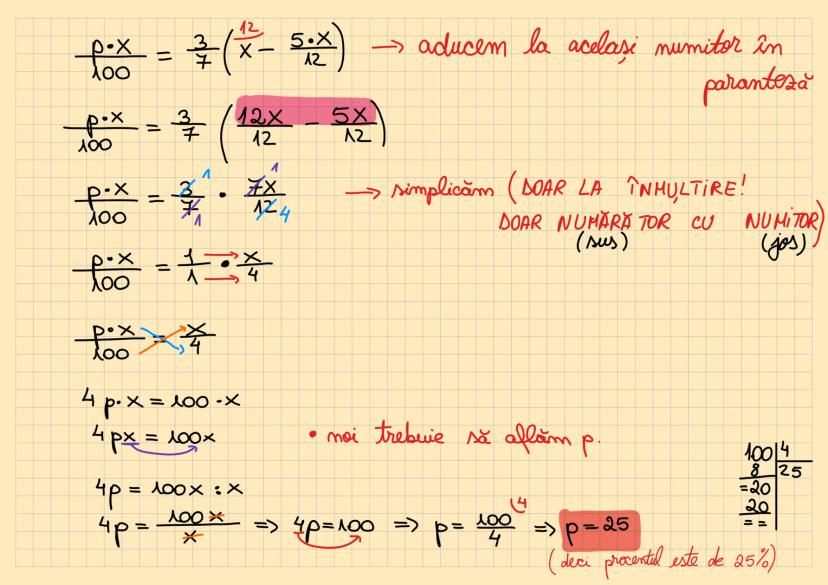 p·x/100 = 3/7 (x^12 − 5·x/12) → aducem la același numitor în
paranteză
p·x/100 = 3/7 (12x/12 − 5x/12)
p·x/100 = 3/7 · 7x/12 → simplicăm (DOAR LA ÎNMULȚIRE!
1 1 1 4
DOAR NUMĂRĂTOR CU NUMITOR)
(sus) (jos)
p·x/100 = 1/1 · x/4
p·x/100 = x/4
4 p·x = 100·x
4 px = 100x • noi trebuie să aflăm p.
4p = 100x : x
4p = 100x/x => 4p = 100 => p = 100/4 (4 => p = 25
(deci procentul este de 25%)
100 | 4
8 | 25
=20
20
==